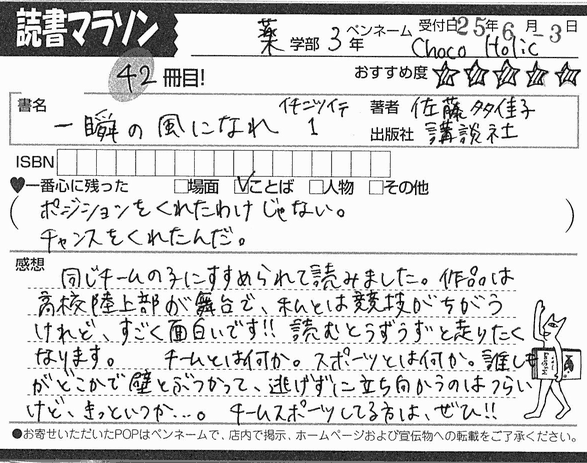 読書マラソン
薬 学部 3 年 ペンネーム Choco Holic 受付日 25年 6月 -3日
42 冊目! おすすめ度 ☆☆☆☆☆
書名 一瞬の風になれ イチニツイテ 1 著者 佐藤多佳子
出版社 講談社
ISBN
♥一番心に残った □場面 ☑ことば □人物 □その他
(ポジションをくれたわけじゃない。
チャンスをくれたんだ。)
感想
同じチームの子にすすめられて読みました。作品は
高校陸上部が舞台で、私とは競技がちがう
けれど、すごく面白いです!! 読むとうずうずと走りたく
なります。 チームとは何か。スポーツとは何か。誰しも
がどこかで壁とぶつかって、逃げずに立ち向かうのはつらい
けど、きっといつか…。 チームスポーツしてる方は、ぜひ!!
●お寄せいただいたPOPはペンネームで、店内で掲示、ホームページおよび宣伝物への転載をご了承ください。